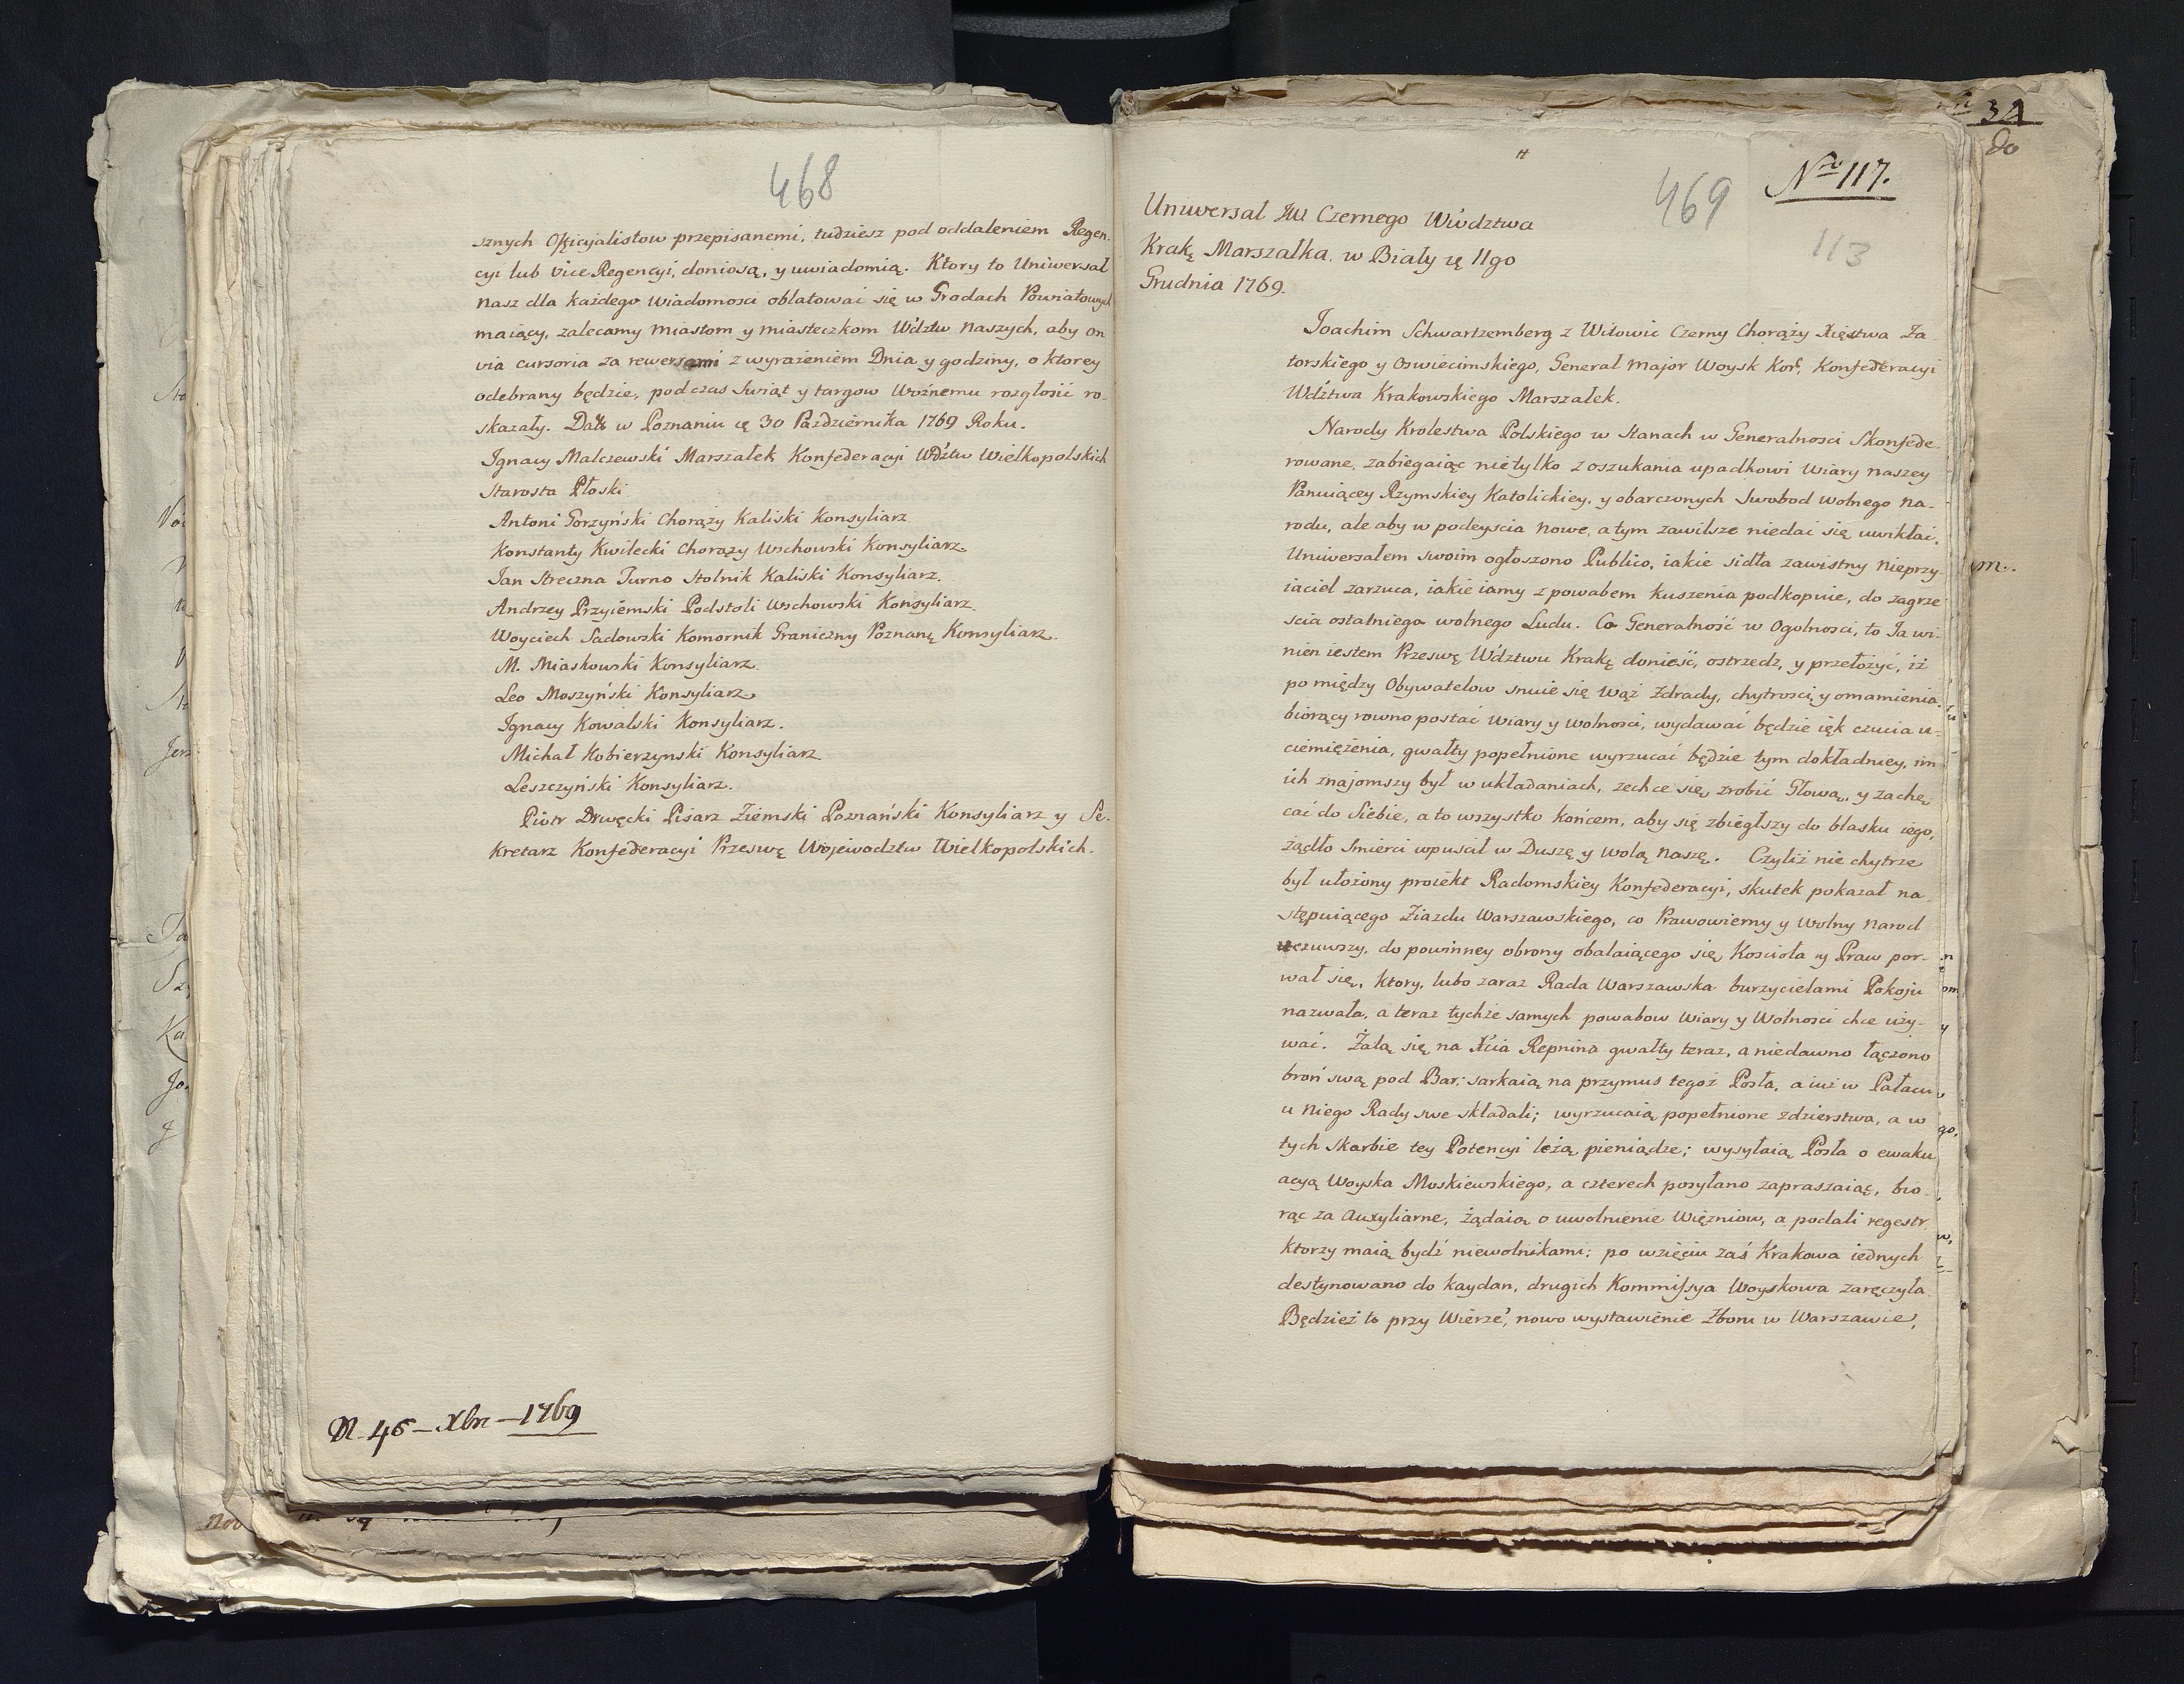 468
sznych Officyalistow przepisanemi, tudziesz pod oddaleniem Regen-
cyi lub Vice Regencyi, doniosą, y uwiadomią. Ktory to Uniwersał
Nasz dla każdego wiadomosci oblatować się w Grodach Powiatowych
maiący, zalecamy Miastom y Miasteczkom Wdztw Naszych, aby on
via cursoria za rewersami z wyrażeniem Dnia y godziny, o ktorey
odebrany będzie, podczas Swiąt y targow Woźnemu rozgłosić ro-
skazały. Datt w Poznaniu ię 30 Października 1769 Roku.
Ignacy Malczewski Marszałek Konfederacyi Wdztw Wielkopolskich
Starosta Płoski
Antoni Gorzyński Chorąży Kaliski Konsyliarz.
Konstanty Kwilecki Chorąży Wschowski Konsyliarz.
Jan Streczna Turno Stolnik Kaliski Konsyliarz.
Andrzey Przyiemski Podstoli Wschowski Konsyliarz.
Woyciech Sadowski Komornik Graniczny Poznanę Konsyliarz.
M. Miaskowski Konsyliarz.
Leo Moszyński Konsyliarz.
Ignacy Kowalski Konsyliarz.
Michał Kobierzynski Konsyliarz
Leszczyński Konsyliarz.
Piotr Drwęcki Pisarz Ziemski Poznański Konsyliarz y Se-
kretarz Konfederacyi Przeswę Wojewodztw Wielkopolskich.
N. 46 – Xbr – 1769
Nro 117.
469
113
Uniwersał JW Czernego Wwdztwa
Krakę Marszałka. w Biały ię 11go
Grudnia 1769.
Joachim Schwartzemberg z Witowic Czerny Chorąży Xięstwa Za-
torskiego y Oswiecimskiego, General Major Woysk Kor, Konfederacyi
Wdztwa Krakowskiego Marszałek.
Narody Krolestwa Polskiego w Stanach w Generalnosci Skonfede-
rowane, zabiegaiąc nietylko z oszukania upadkowi Wiary Naszey
Panuiącey Rzymskiey Katolickiey, y obarczonych Swobod Wolnego Na-
rodu, ale aby w podeyscia nowe, a tym zawilsze niedać się uwikłać,
Uniwersałem swoim ogłoszono Publico, iakie sidła zawistny Nieprzy-
iaciel zarzuca, iakie iamy z powabem kuszenia podkopuie, do zagrze
scia ostatniego wolnego Ludu. Co Generalność w Ogolnosci, to Ja wi-
nien iestem Przeswę Wdztwu Krakę donieść, ostrzedz, y przełożyć, iż
po między Obywatelow snuie się wąż Zdrady, chytrosci, y omamienia,
biorący rowno postać Wiary y Wolnosci, wydawać będzie ięk czucia u-
ciemiężenia, gwałty popełnione wyrzucać będzie tym dokładniey, im
ich znajomszy był w układaniach, zechce się zrobić Głową, y zachę-
cać do Siebie, a to wszystko końcem, aby się zbiegłszy do blasku iego,
żądło Smierci wpuscał w Duszę y wolą naszę. Czyliż nie chytrze
był ułożony proiekt Radomskiey Konfederacyi, skutek pokazał na-
stępuiącego Ziazdu Warszawskiego, co Prawowierny y Wolny Narod
uczuwszy, do powinney obrony obalaiącego się Kościoła y Praw por-
wał się, ktory, lubo zaraz Rada Warszawska burzycielami Pokoju
nazwała, a teraz tychże samych powabow Wiary y Wolnosci chce uży-
wać. Żalą się na Xcia Repnina gwałty teraz, a niedawno łączono
broń swą pod Bar; sarkaią na przymus tegoż Posła, a iuż w Pałacu
u Niego Rady swe składali; wyrzucaią popełnione zdzierstwa, a w
tych Skarbie tey Potencyi leżą pieniądze; wysyłaią Posła o ewaku
acyą Woyska Moskiewskiego, a czterech posyłano zapraszaiąc, bio-
rąc za Auxyliarne, żądaią o uwolnienie Więzniow, a podali regestr
ktorzy maią bydź niewolnikami; po wzięciu zaś Krakowa iednych
destynowano do kaydan, drugich Kommissya Woyskowa zaręczyła.
Będzież to przy Wierze, nowo wystawienie Zboru w Warszawie,